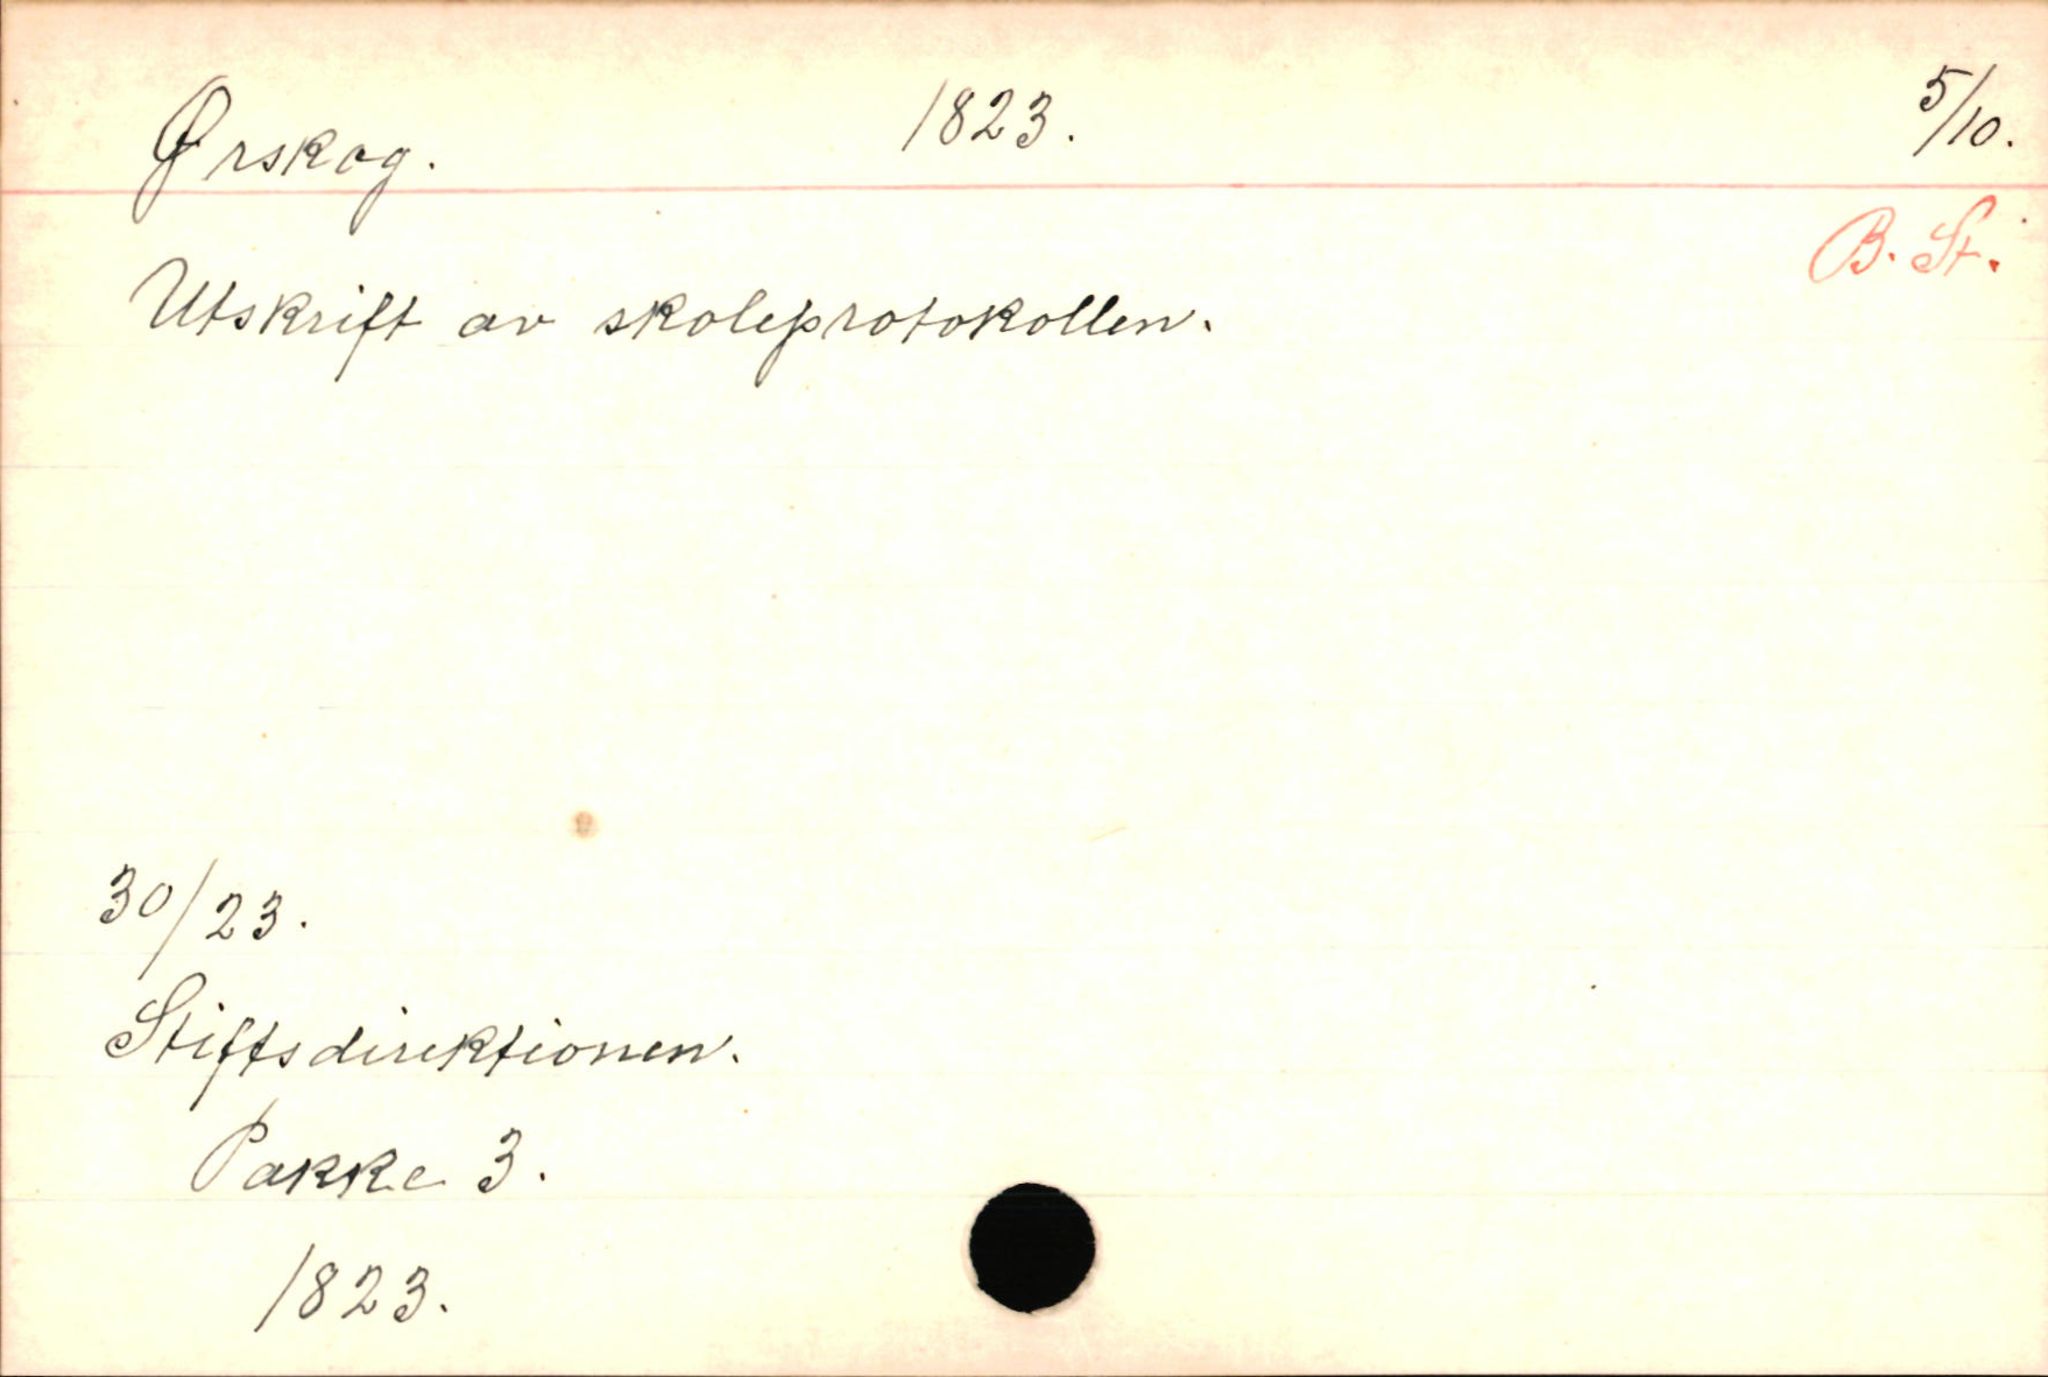 Ørskog. 1823. 5/10.
B. St.
Utskrift av skoleprotokollen.
30/23.
Stiftsdirektionen.
Pakke 3.
1823.